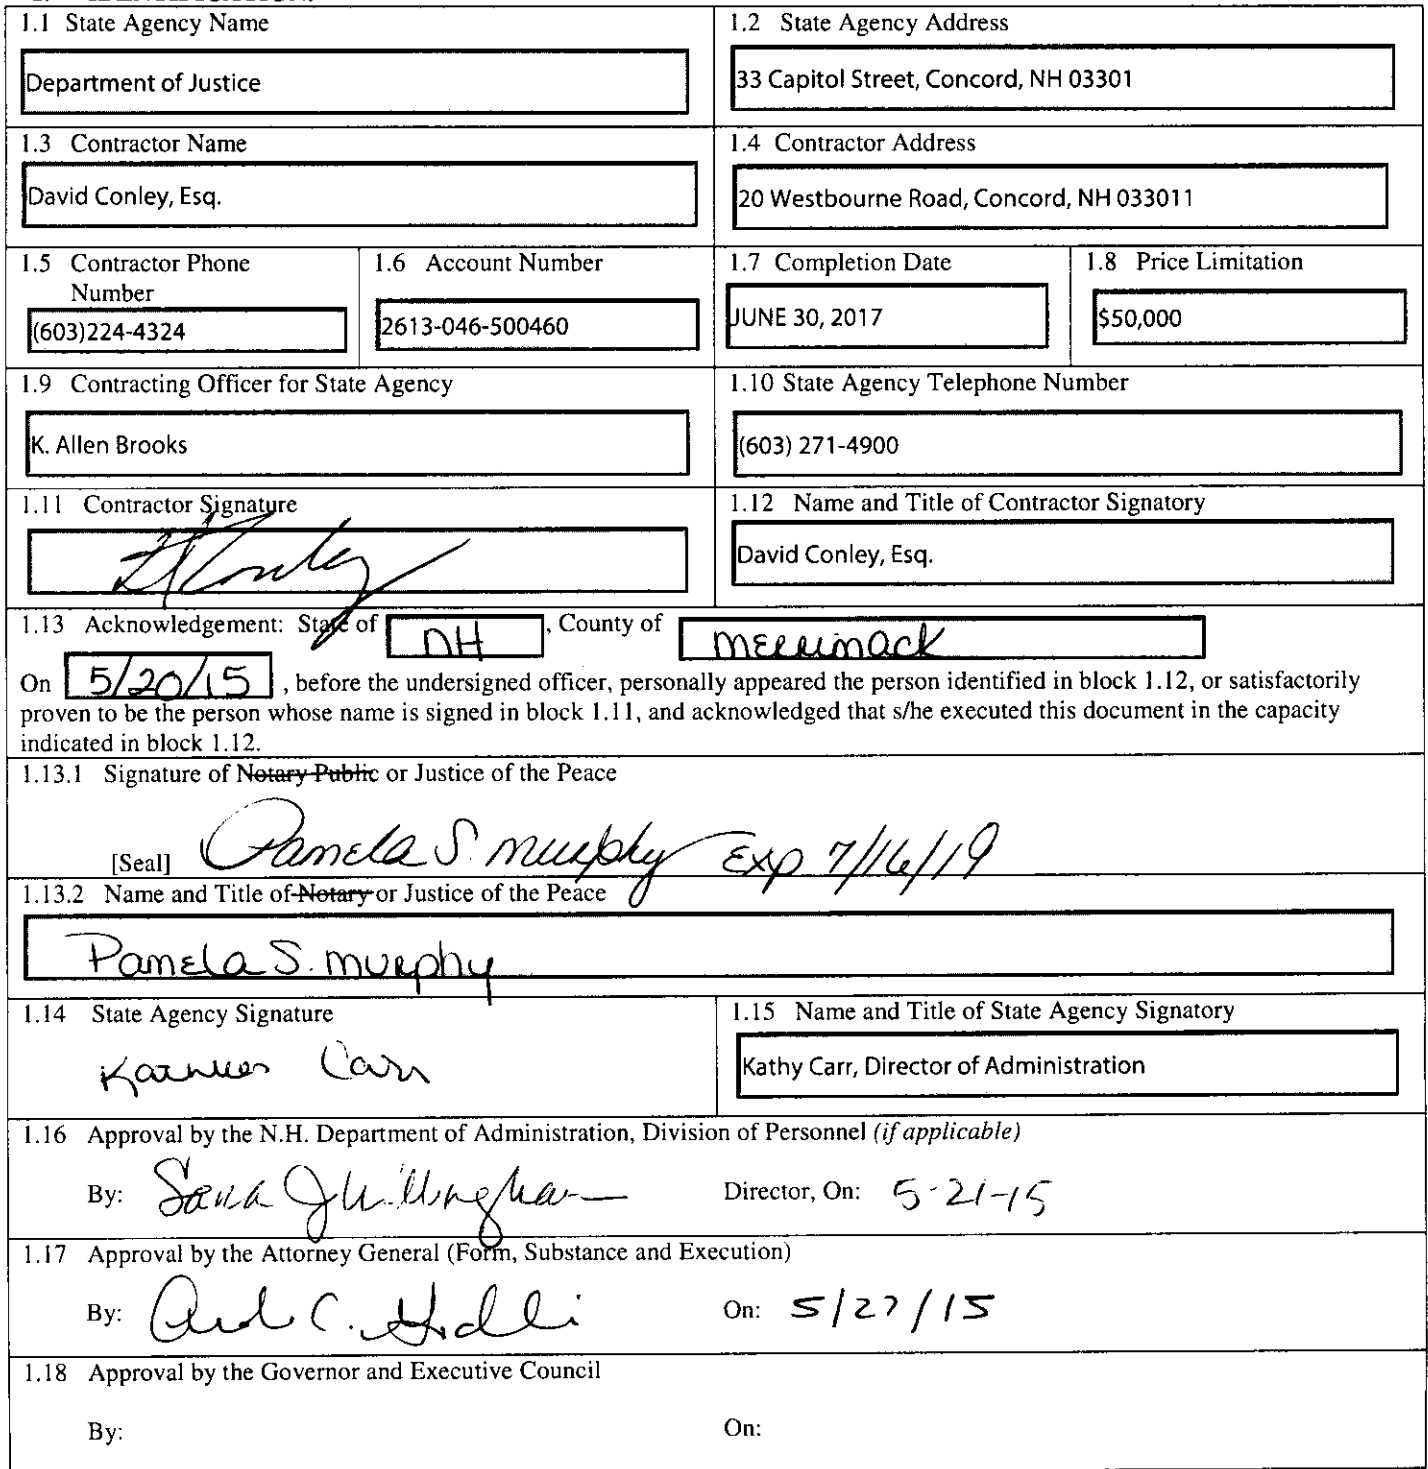 1.1 State Agency Name
Department of Justice
1.2 State Agency Address
33 Capitol Street, Concord, NH 03301
1.3 Contractor Name
David Conley, Esq.
1.4 Contractor Address
20 Westbourne Road, Concord, NH 033011
1.5 Contractor Phone
Number
(603)224-4324
1.6 Account Number
2613-046-500460
1.7 Completion Date
JUNE 30, 2017
1.8 Price Limitation
$50,000
1.9 Contracting Officer for State Agency
K. Allen Brooks
1.10 State Agency Telephone Number
(603) 271-4900
1.11 Contractor Signature
Conley
1.12 Name and Title of Contractor Signatory
David Conley, Esq.
1.13 Acknowledgement: State of NH, County of Merrimack
On 5/20/15, before the undersigned officer, personally appeared the person identified in block 1.12, or satisfactorily
proven to be the person whose name is signed in block 1.11, and acknowledged that s/he executed this document in the capacity
indicated in block 1.12.
1.13.1 Signature of Notary Public or Justice of the Peace
[Seal] Pamela S. Murphy Exp 7/16/19
1.13.2 Name and Title of Notary or Justice of the Peace
Pamela S. Murphy
1.14 State Agency Signature
Carr
1.15 Name and Title of State Agency Signatory
Kathy Carr, Director of Administration
1.16 Approval by the N.H. Department of Administration, Division of Personnel (if applicable)
By: Sara J Willingham Director, On: 5-21-15
1.17 Approval by the Attorney General (Form, Substance and Execution)
By: On: 5/27/15
1.18 Approval by the Governor and Executive Council
By: On: